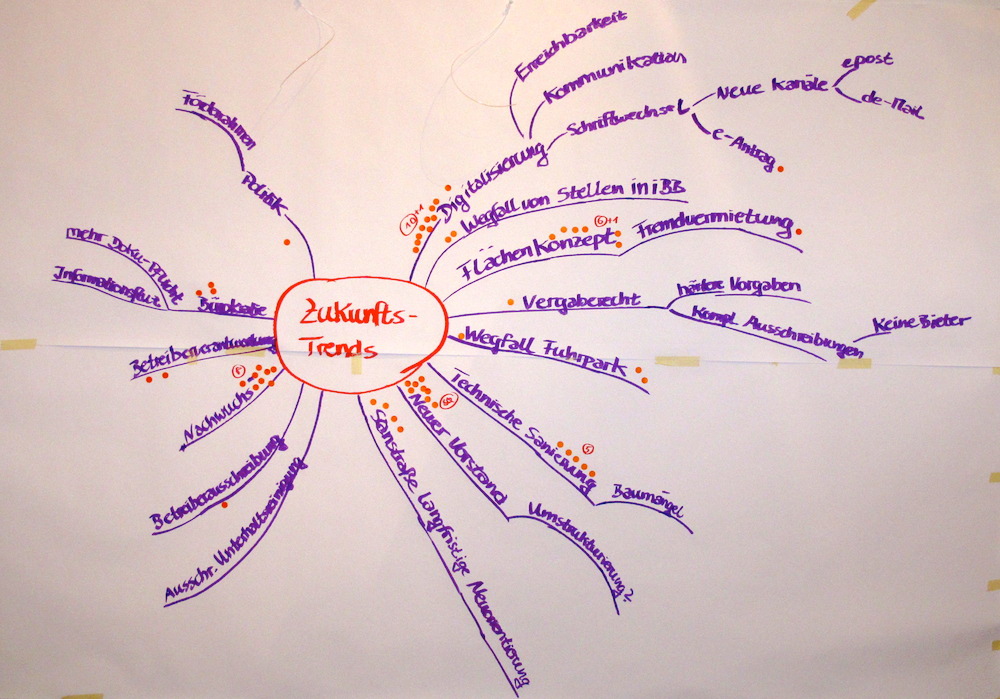 Zukunfts-
Trends
Digitalisierung
10+1
Erreichbarkeit
Kommunikation
Schriftwechsel
Neue Kanäle
epost
de-Mail
e-Antrag
Wegfall von Stellen in iBB
Flächenkonzept
6+1
Fremdvermietung
Vergaberecht
härtere Vorgaben
Kompl. Ausschreibungen
Keine Bieter
Wegfall Fuhrpark
Technische Sanierung
5
Baumängel
Neuer Vorstand
Umstrukturierung?
langfristige Neuorientierung
Ausschr. Unterhaltsreinigung
Betreiberausschreibung
Nachwuchs
Betreiberverantwortung
Bürokratie
mehr Doku-Pflicht
Informationsflut
Politik